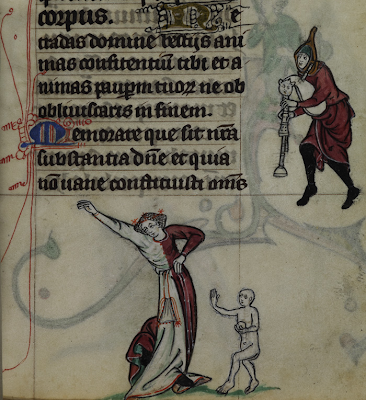 corpus. Ne
tradas domine bestijs ani
mas confitentium tibi et a
nimas paupm tuoꝝ ne ob
obliuiscaris in finem.
Memorare que sit
substantia dñe et quia
nō uane constituisti om̄s